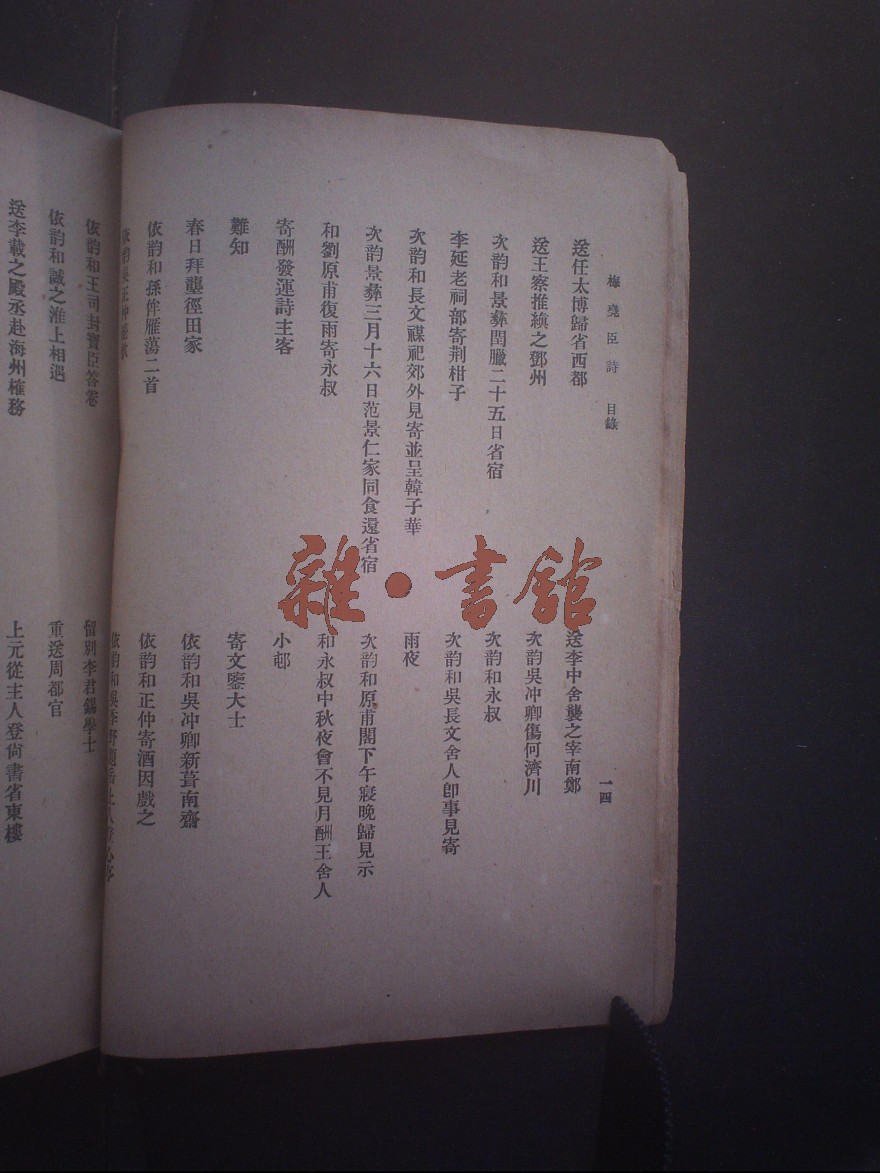 梅堯臣詩 目錄
一四
送任太博歸省西都
送李中舍襲之宰南鄭
送王察推縝之鄧州
次韵吳冲卿傷何濟川
次韵和景彝閏臘二十五日省宿
次韵和永叔
李延老祠部寄荆柑子
次韵和吳長文舍人卽事見寄
次韵和長文禖祀郊外見寄並呈韓子華
雨夜
次韵景彝三月十六日范景仁家同食還省宿
次韵和原甫閣下午寢晚歸見示
和劉原甫復雨寄永叔
和永叔中秋夜會不見月酬王舍人
寄酬發運詩主客
小邨
難知
寄文鑒大士
春日拜壟徑田家
依韵和吳冲卿新葺南齋
依韵和孫侔雁蕩二首
依韵和正仲寄酒因戲之
依韵和王司封寶臣答卷
留別李君錫學士
依韵和誠之淮上相遇
重送周都官
送李載之殿丞赴海州榷務
上元從主人登尙書省東樓
雜·書館